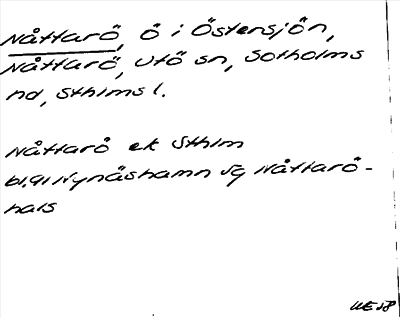 Nåttarö, ö i Östensjön,
Nåttarö, Utö sn, Sotholms
hd, Sthlms l.
Nåttarö ek Sthlm
bl. 91 Nynäshamn Sg Nåttarö-
hals